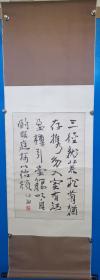 三径就荒松菊犹
存携幼入室有酒
盈樽引壶觞以自
酌眄庭柯以怡颜